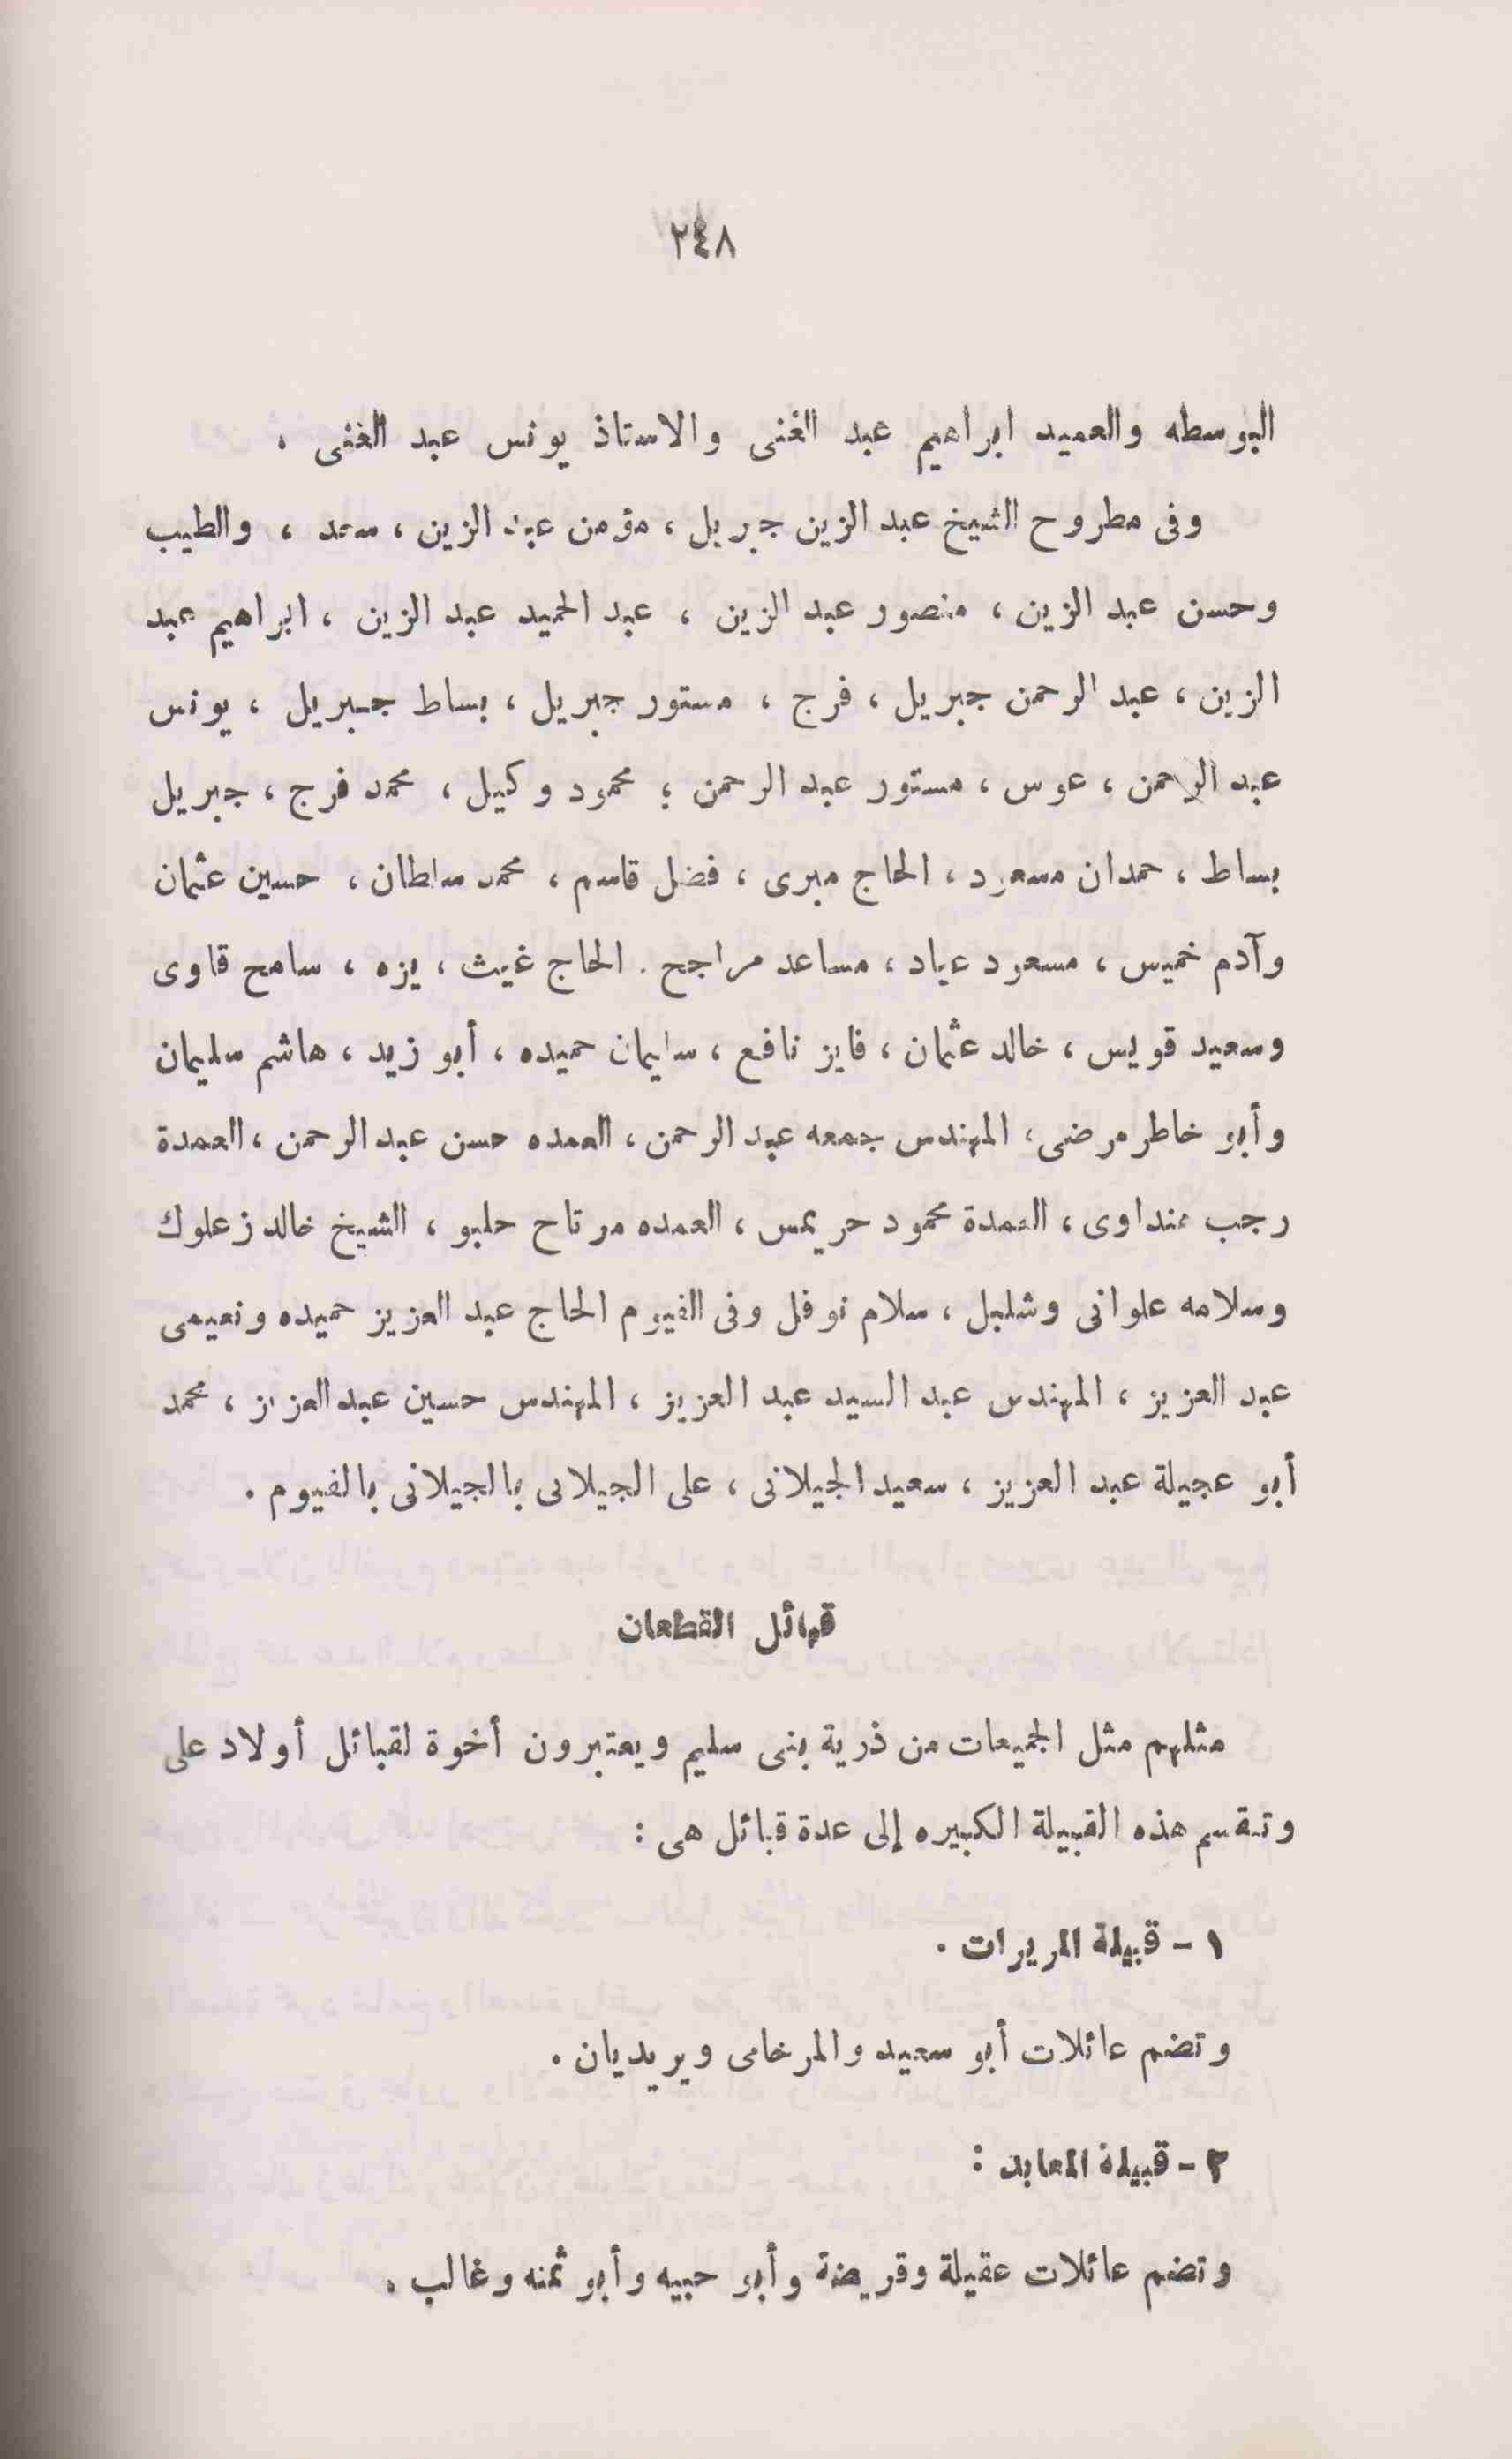 ٢٤٨
البوسطه والعميد ابراهيم عبد الغنى والاستاذ يونس عبد الغنى .
وفى مطروح الشيخ عبد الزين جبريل ، مؤمن عبد الزين ، سعد ، والطيب
وحسن عبد الزين ، منصور عبد الزين ، عبد الحميد عبد الزين ، ابراهيم عبد
الزين ، عبد الرحمن جبريل ، فرج ، مستور جبريل ، بساط جبريل ، يونس
عبد الرحمن ، عوس ، مستور عبد الرحمن ؛ محمود وكيل ، محمد فرج ، جبريل
بساط ، حمدان مسعود ، الحاج مبرى ، فضل قاسم ، محمد سلطان ، حسين عثمان
وآدم خميس ، مسعود عباد ، مساعد مراجح . الحاج غيث ، يزه ، سامح قاوى
وسعيد قويس ، خالد عثمان ، فايز نافع ، سليمان حميده ، أبو زيد ، هاشم سليمان
وأبو خاطر مرضى ، المهندس جمعه عبد الرحمن ، العمده حسن عبد الرحمن ، العمدة
رجب هنداوى ، العمدة محمود حريمس ، العمده مرتاح حلبو ، الشيخ خالد زعلوك
وسلامه علوانى وشلبل ، سلام نوفل وفى الفيوم الحاج عبد العزيز حميده ونعيمى
عبد العزيز ، المهندس عبد السيد عبد العزيز ، المهندس حسين عبد العزيز ، محمد
أبو عجيلة عبد العزيز ، سعيد الجيلانى ، على الجيلانى بالجيلانى بالفيوم .
قبائل القطعان
مثلهم مثل الجميعات من ذرية بنى سليم ويعتبرون أخوة لقبائل أولاد على
وتنقسم هذه القبيلة الكبيره إلى عدة قبائل هى :
١ - قبيلة المريرات .
وتضم عائلات أبو سعيد والمرخامى ويريديان .
٢ - قبيلة المعابد :
وتضم عائلات عقيلة وقريضة وأبو حبيه وأبو ثمنه وغالب .